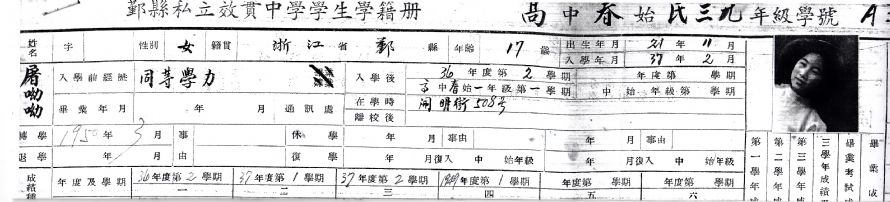 鄞縣私立效實中學學生學籍冊 高中春始民三九年級學號 A
姓名 字 性別 女 籍貫 浙江 省 鄞 縣 年齡 17 歲 出生年月 21 年 11 月
入學年月 37 年 2 月
屠呦呦 入學前經歷 同等學力 入學後 36 年度第 2 學期 年度第 學期
高中春始一年級第一學期 中 始 年級第 學期
畢業年月 年 月 通訊處 在學時 開明街508号
離校後
轉學 1950 年 3 月 事 休學 年 月 事由 年 月 事由
退學 年 月 由 復學 年 月復入 中 始年級 年 月復入 中 始年級
成績 年度及學期 36年度第2學期 37年度第1學期 37年度第2學期 1949年度第1學期 年度第 學期 年度第 學期
一 二 三 四 五 六
第一學年成
第二學年成
第三學年成
三學年成績
畢業考試成
畢業成